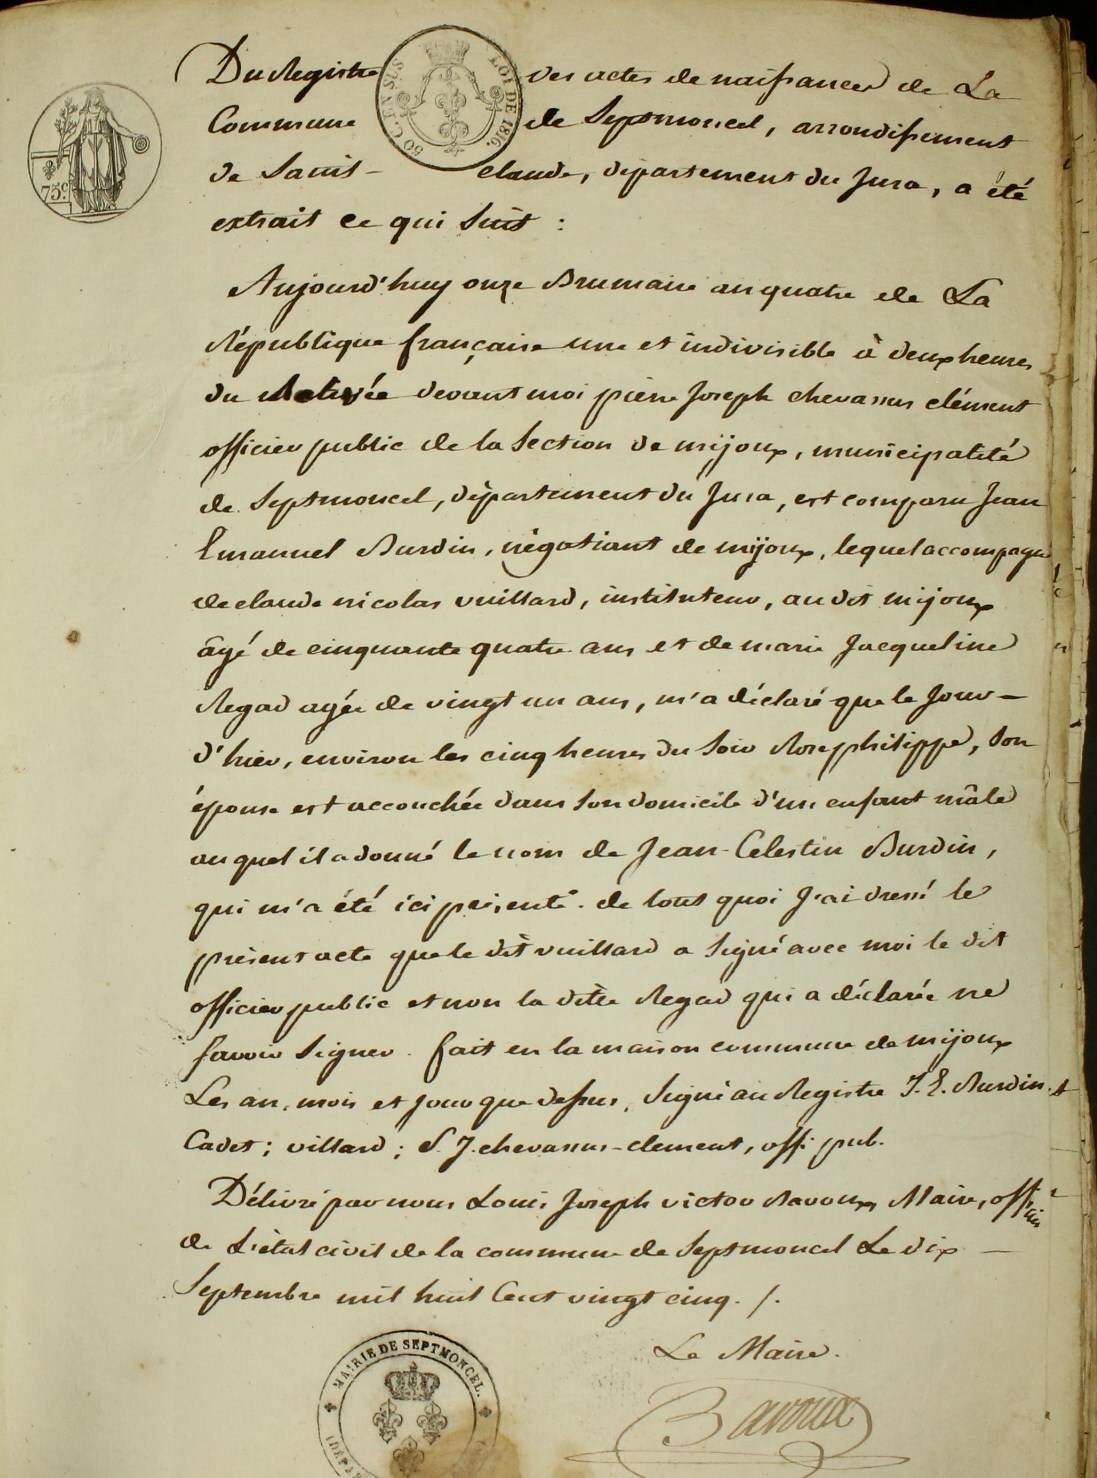 75c.
50 C. EN SUS LOI DE 1816.
Du Registre des actes de naissances de La
Commune de Septmoncel, arrondissement
de Saint-claude, département du Jura, a été
extrait ce qui suit :
Aujourd'huy onze Brumaire an quatre de La
République française une et indivisible à deux heures
du Relevée devant moi pierre Joseph chevassus clément
officier public de la Section de mijoux, municipalité
de Septmoncel, département du Jura, est comparu Jean
Emanuel Burdin, négotiant de mijoux, lequel accompagné
de claude nicolas vuillard, instituteur, au dit mijoux
âgé de cinquante quatre ans et de marie Jacqueline
Regad agée de vingt un ans, m'a déclaré que le jour
d'hier, environ les cinq heures du soir Rose philippe, son
épouse est accouchée dans son domicile d'un enfant mâle
auquel il a donné le nom de Jean-Celestin Burdin,
qui m'a été ici présenté. de tout quoi j'ai dressé le
présent acte que le dit vuillard a signé avec moi le dit
officier public et non la dite Regad qui a déclarée ne
savoir signer. fait en la maison commune de mijoux
Les an, mois et jour que dessus, Signé au Registre J. E. Burdin
Cadet ; villard ; P. J. chevassus-clement, offi. pub.
Délivré par nous Louis Joseph victor Bavoux, Maire, officier
de L'état civil de la commune de Septmoncel Le dix
Septembre mil huit Cent vingt cinq. /.
Le Maire.
Bavoux
MAIRIE DE SEPTMONCEL.